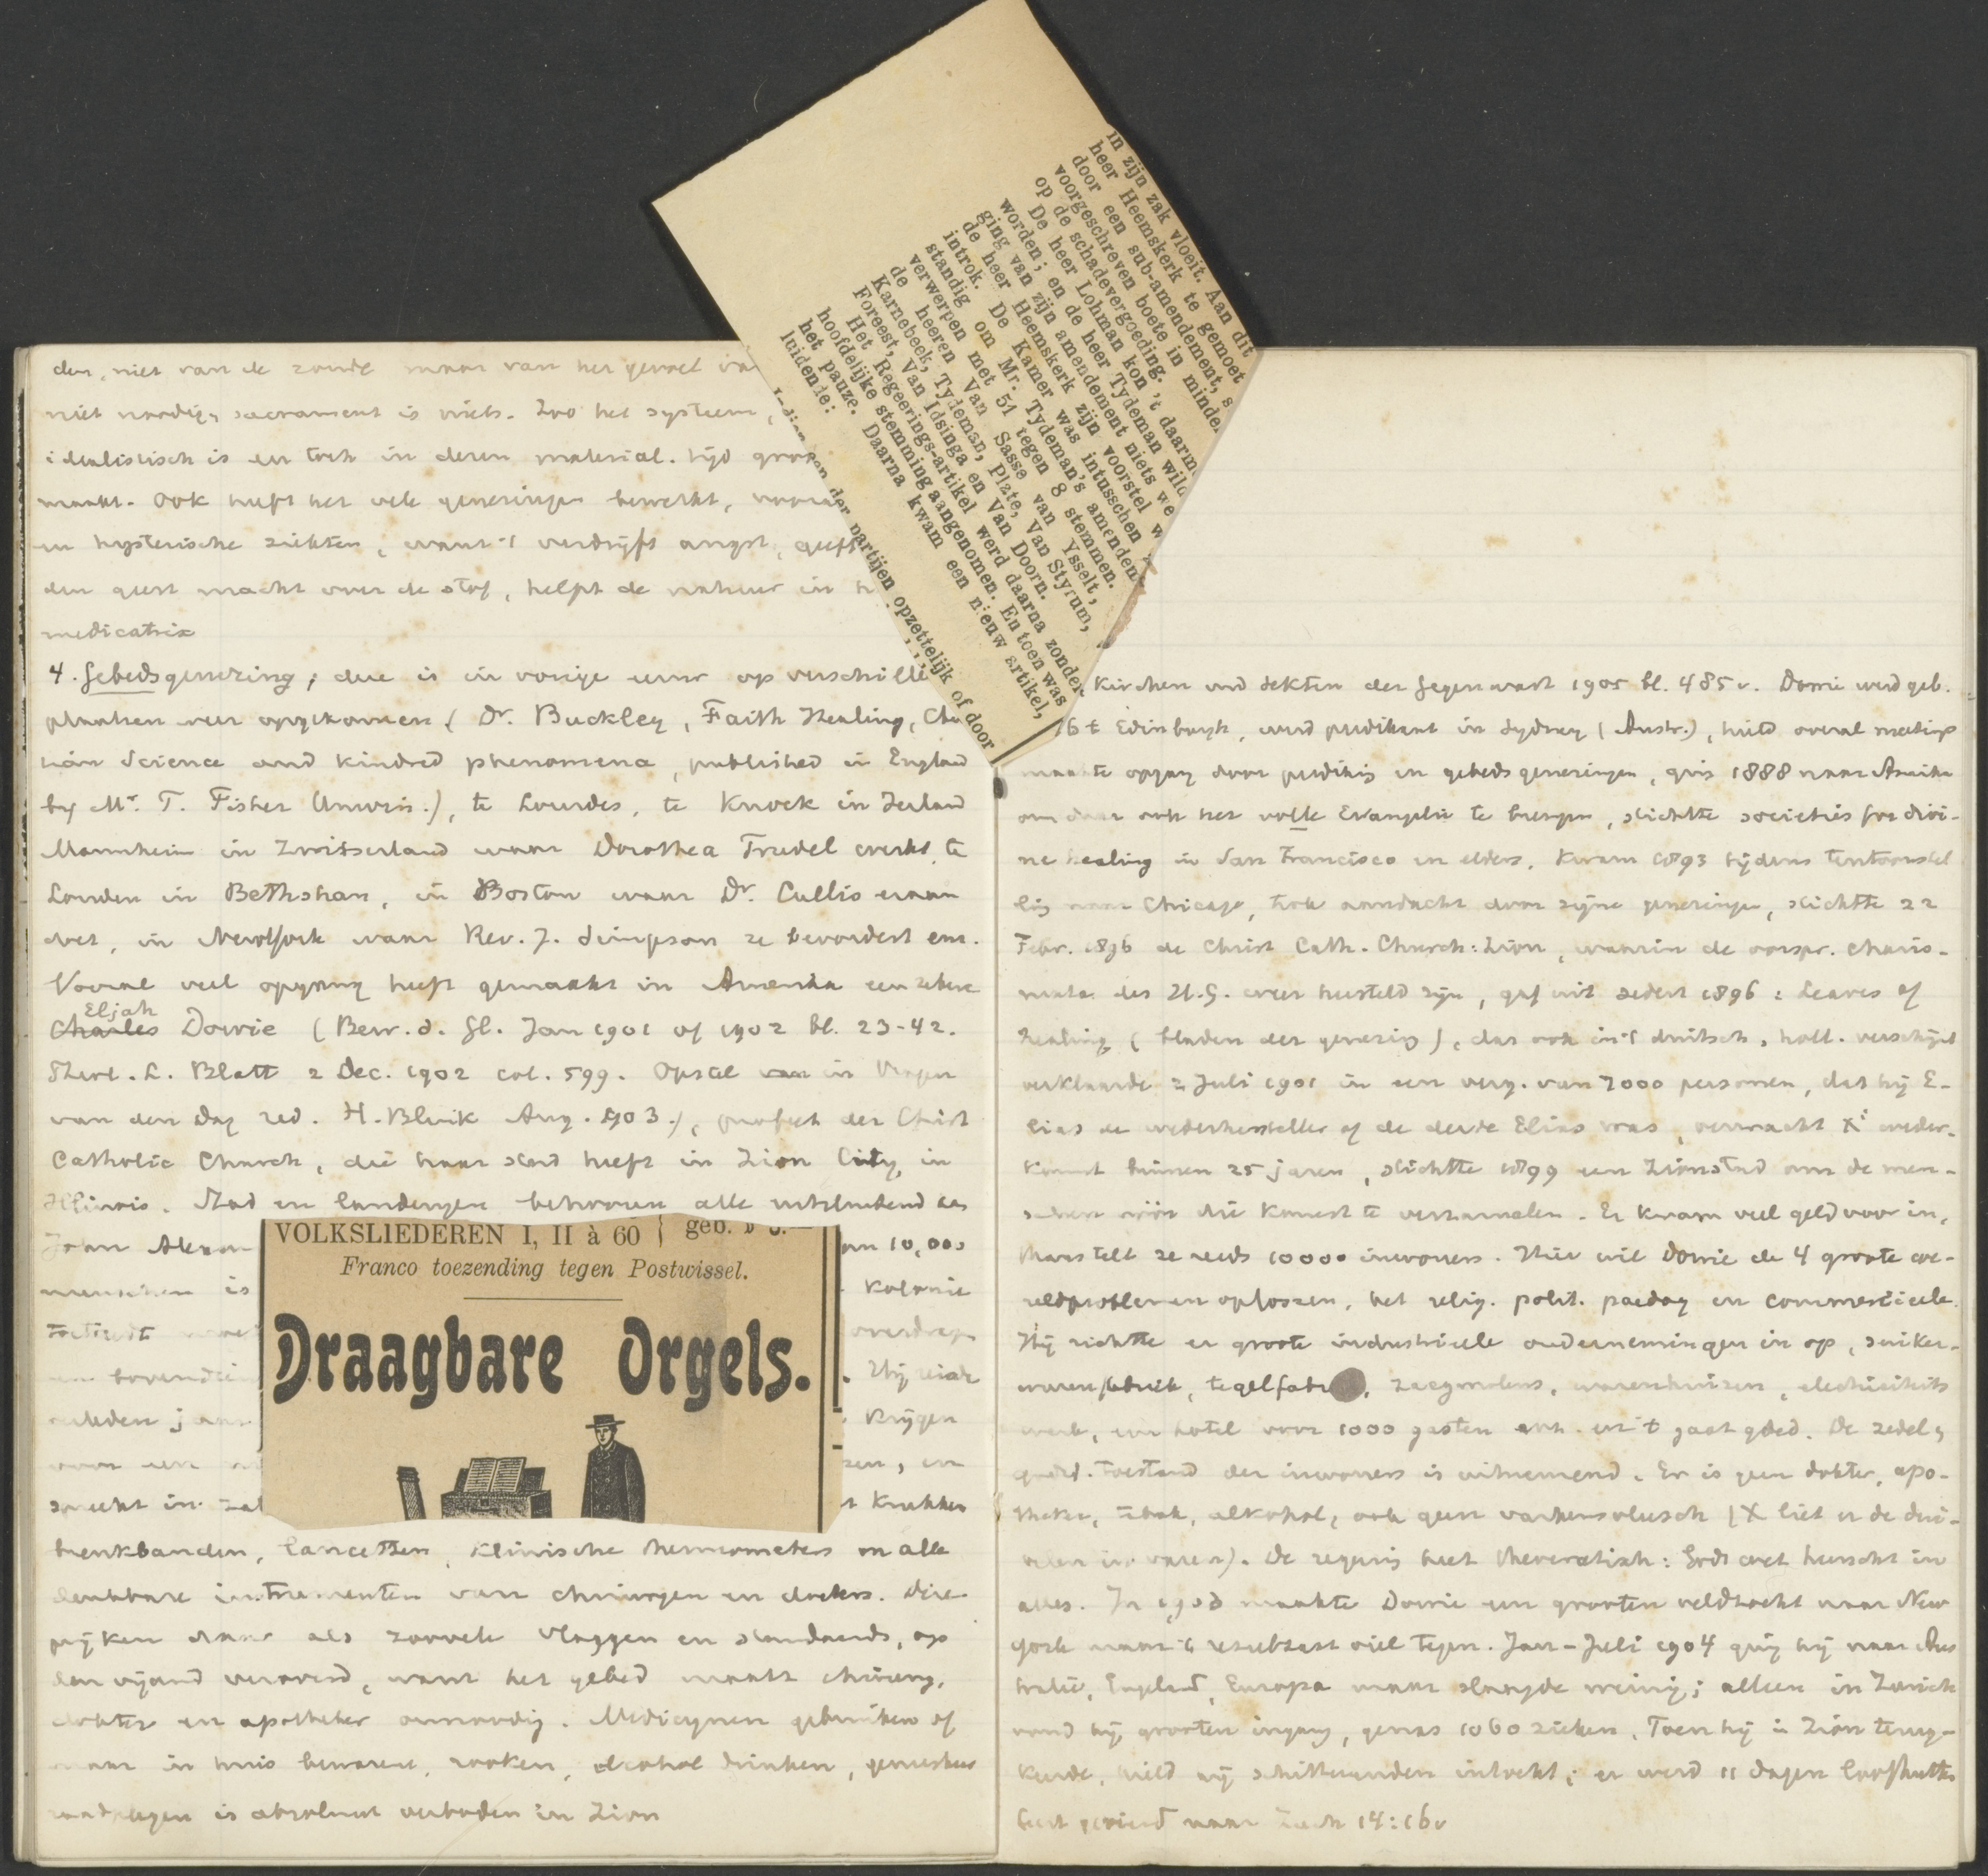 den, niet van de zonde maar van het gevoel va
niet noodig, sacrament is niets. Zoo het systeem,
idealistisch is en toch in dezen material. tijd groo
maakt. Ook heeft het vele genezingen bewerkt, vooral
in hysterische ziekten, want 't verdrijft angst, geeft
den geest macht over de stof, helpt de natuur in h
medicatrix
4. Gebedsgenezing; die is in vorige eeuw op verschille
plaatsen weer opgekomen (Dr. Buckley, Faith Healing, Chr
tian Science and kindred phenomena, published in England
by Mr. T. Fisher Unwin.), te Lourdes, te Knock in Ierland
Mannheim in Zwitserland waar Dorothea Trudel werkt, te
Londen in Bethshan, in Boston waar Dr. Cullis eraan
doet, in NewYork waar Rev. J. Simpson ze bevordert enz.
Vooral veel opgang heeft gemaakt in Amerika een zekere
Eljah
Charles Dowie (Bew. d. Gl. Jan 1901 of 1902 bl. 23-42.
Theol. L. Blatt 2 Dec. 1902 col. 599. Opstel van in Vragen
van den Dag red. H. Blink Aug. 1903.), profeet der Christ
Catholic Church, die haar stad heeft in Zion City, in
Illinois. Stad en landerijen behooren alle uitsluitend aan
John Alexan
an 10,000
menschen is
Kolonie
en bovendien
. Hij
geleden jaar
Krijgen
voor een
zen, en
spreekt in zal
t Krukken
breukbanden, lancetten, klinische thermometers en alle
denkbare instrumenten van chirurgen en dokters. Die
prijken daar als zoovele vlaggen en standaards, op
den vijand veroverd, want het gebed maakt chirurg,
dokter en apotheker onnoodig. Medicijnen gebruiken of
maar in huis bewaren, rooken, alcohol drinken,
raadplegen is absoluut verboden in Zion
VOLKSLIEDEREN I, II à 60 geb.
Franco toezending tegen Postwissel.
Draagbare Orgels.
in zijn zak vloeit. Aan dit
heer Heemskerk te gemoet
door een sub-amendement, s
voorgeschreven boete in minder
op de schadevergoeding.
De heer Lohman kon 't daarm
worden; en de heer Tydeman wild
ging van zijn amendement niets we
de heer Heemskerk zijn voorstel w
introk. De Kamer was intusschen
standig om Mr. Tydeman's amendem
verwerpen met 51 tegen 8 stemmen.
de heeren Van Sasse van Ysselt,
Karnebeek, Tydeman, Plate, Van Styrum,
Foreest, Van Idsinga en Van Doorn.
Het Regeerings-artikel werd daarna zonder
hoofdelijke stemming aangenomen. En toen was
het pauze. Daarna kwam een nieuw artikel,
luidende:
der partijen opzettelijk of door
Kirchen und Sekten der Gegenwart 1905 bl. 485v. Dowie werd geb.
te Edinburgh, werd predikant in Sydney (Austr.), hield overal meetings
maakte opgang door prediking en gebedsgenezingen, ging 1888 naar Amerika
om daar ook het volle Evangelie te brengen, stichtte societies for divi-
ne healing in San Francisco en elders. Kwam 1893 tijdens tentoonstel
ling naar Chicago, trok aandacht door zijne genezingen, stichtte 22
Febr. 1896 de Christ Cath. Church: Zion, waarin de oorspr. charis-
mata des H.G. weer hersteld zijn, gaf uit sedert 1896: Leaves of
Healing (bladen der genezing), dat ook in 't duitsch, holl. verschijnt
verklaarde 2 Juli 1901 in een verg. van 7000 personen, dat hij E-
lias de wederhersteller of de derde Elias was, verwacht X' weder-
komst binnen 25 jaren, stichtte 1899 een Zionstad om de men-
schen vóór die komst te verzamelen. Er kwam veel geld voor in,
thans telt ze reeds 10000 inwoners. Hier wil Dowie de 4 groote we-
reldproblemen oplossen, het relig. polit. paedag en commercieele.
Hij richtte er groote industrieele ondernemingen in op, suiker-
warenfabriek, tegelfabr, zaagmolens, warenhuizen, electriciteits
werk, een hotel voor 1000 gasten enz. en 't gaat goed. De zedel,
godsd. toestand der inwoners is uitnemend. Er is geen dokter, apo-
theker, tabak, alkohol, ook geen varkensvleesch (X liet er de dui-
velen in varen). De regeering heet theocratisch: Gods wet heerscht in
alles. In 1903 maakte Dowie een grooten veldtocht naar New
York maar 't resultaat viel tegen. Jan-Juli 1904 ging hij naar Aus
tralië, Engeland, Europa maar slaagde weinig; alleen in Zurich
vond hij grooten ingang, genas 1060 zieken. Toen hij in Zion terug-
keerde, hield hij schitterenden intocht; er werd 11 dagen loofhutten
feest gevierd naar Zach 14:16v